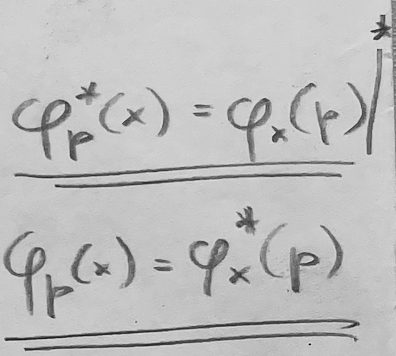 φₚ*(x) = φₓ(p) |*
φₚ(x) = φₓ*(p)